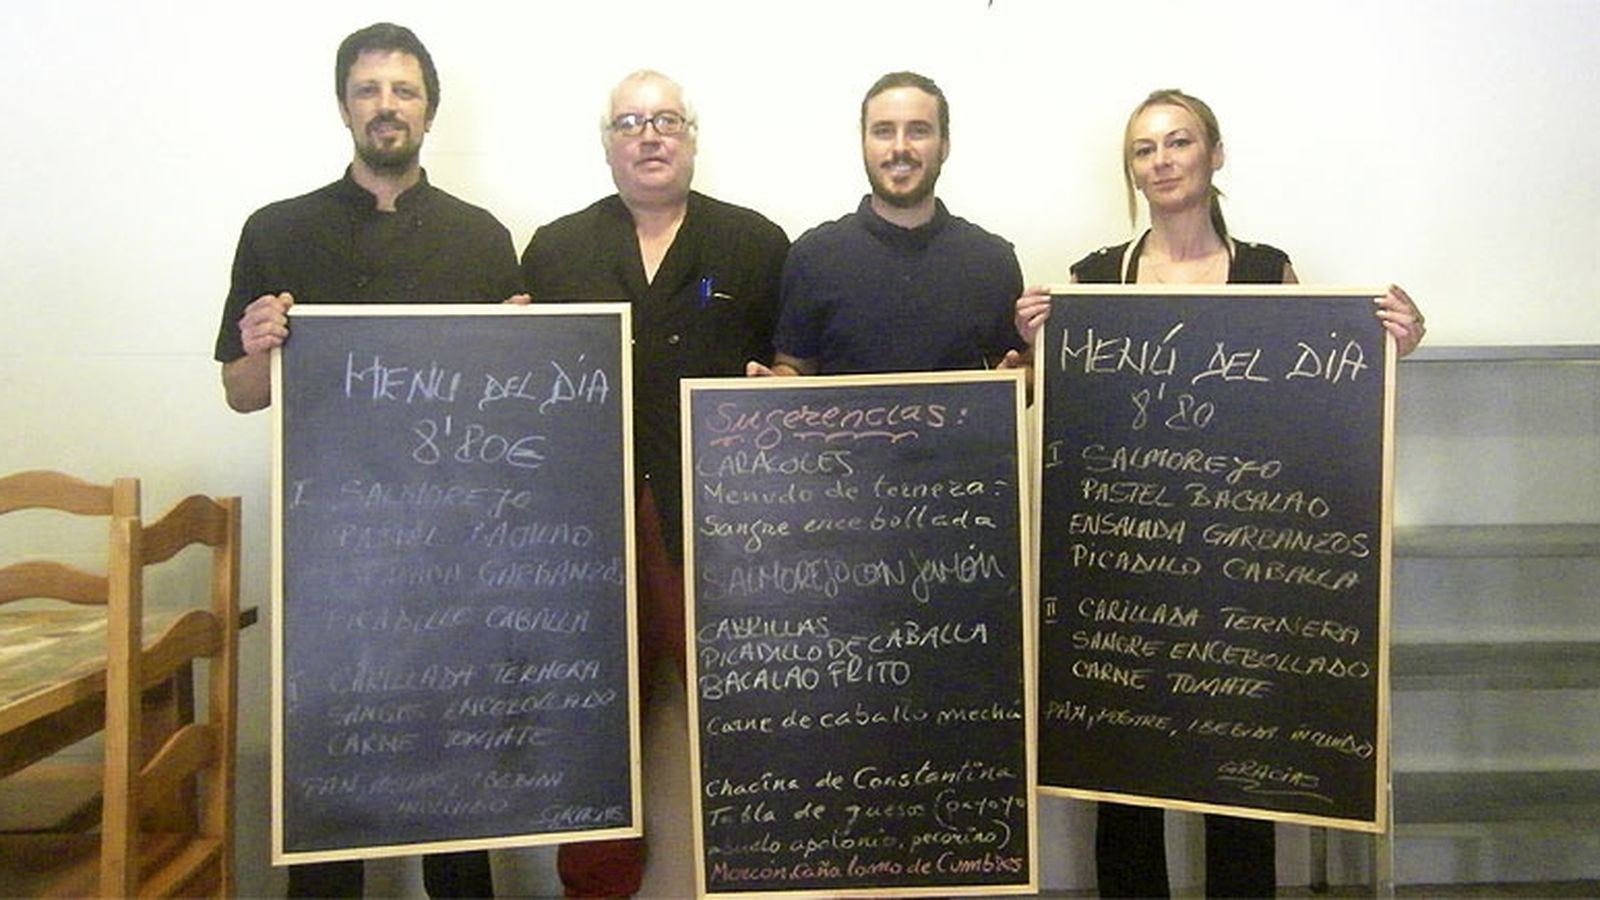 MENU DEL DÍA
8'80€
I SALMOREJO
PASTEL BACALAO
ENSALADA GARBANZOS
PICADILLO CABALLA
CARILLADA TERNERA
SANGRE ENCEBOLLADO
CARNE TOMATE
PAN, POSTRE, 1 BEBIDA
INCLUIDO
GRACIAS
Sugerencias:
CARACOLES
Menudo de ternera:
Sangre encebollada
SALMOREJO CON JAMÓN
CABRILLAS
PICADILLO DE CABALLA
BACALAO FRITO
Carne de caballo mechá
Chacina de Constantina
Tabla de quesos (payoyo
abuelo apolonio, pecorino)
Morcón, Caña lomo de Cumbres
MENÚ DEL DIA
8'80
I SALMOREJO
PASTEL BACALAO
ENSALADA GARBANZOS
PICADILLO CABALLA
II CARILLADA TERNERA
SANGRE ENCEBOLLADO
CARNE TOMATE
PAN, POSTRE, 1 BEBIDA INCLUIDO
GRACIAS